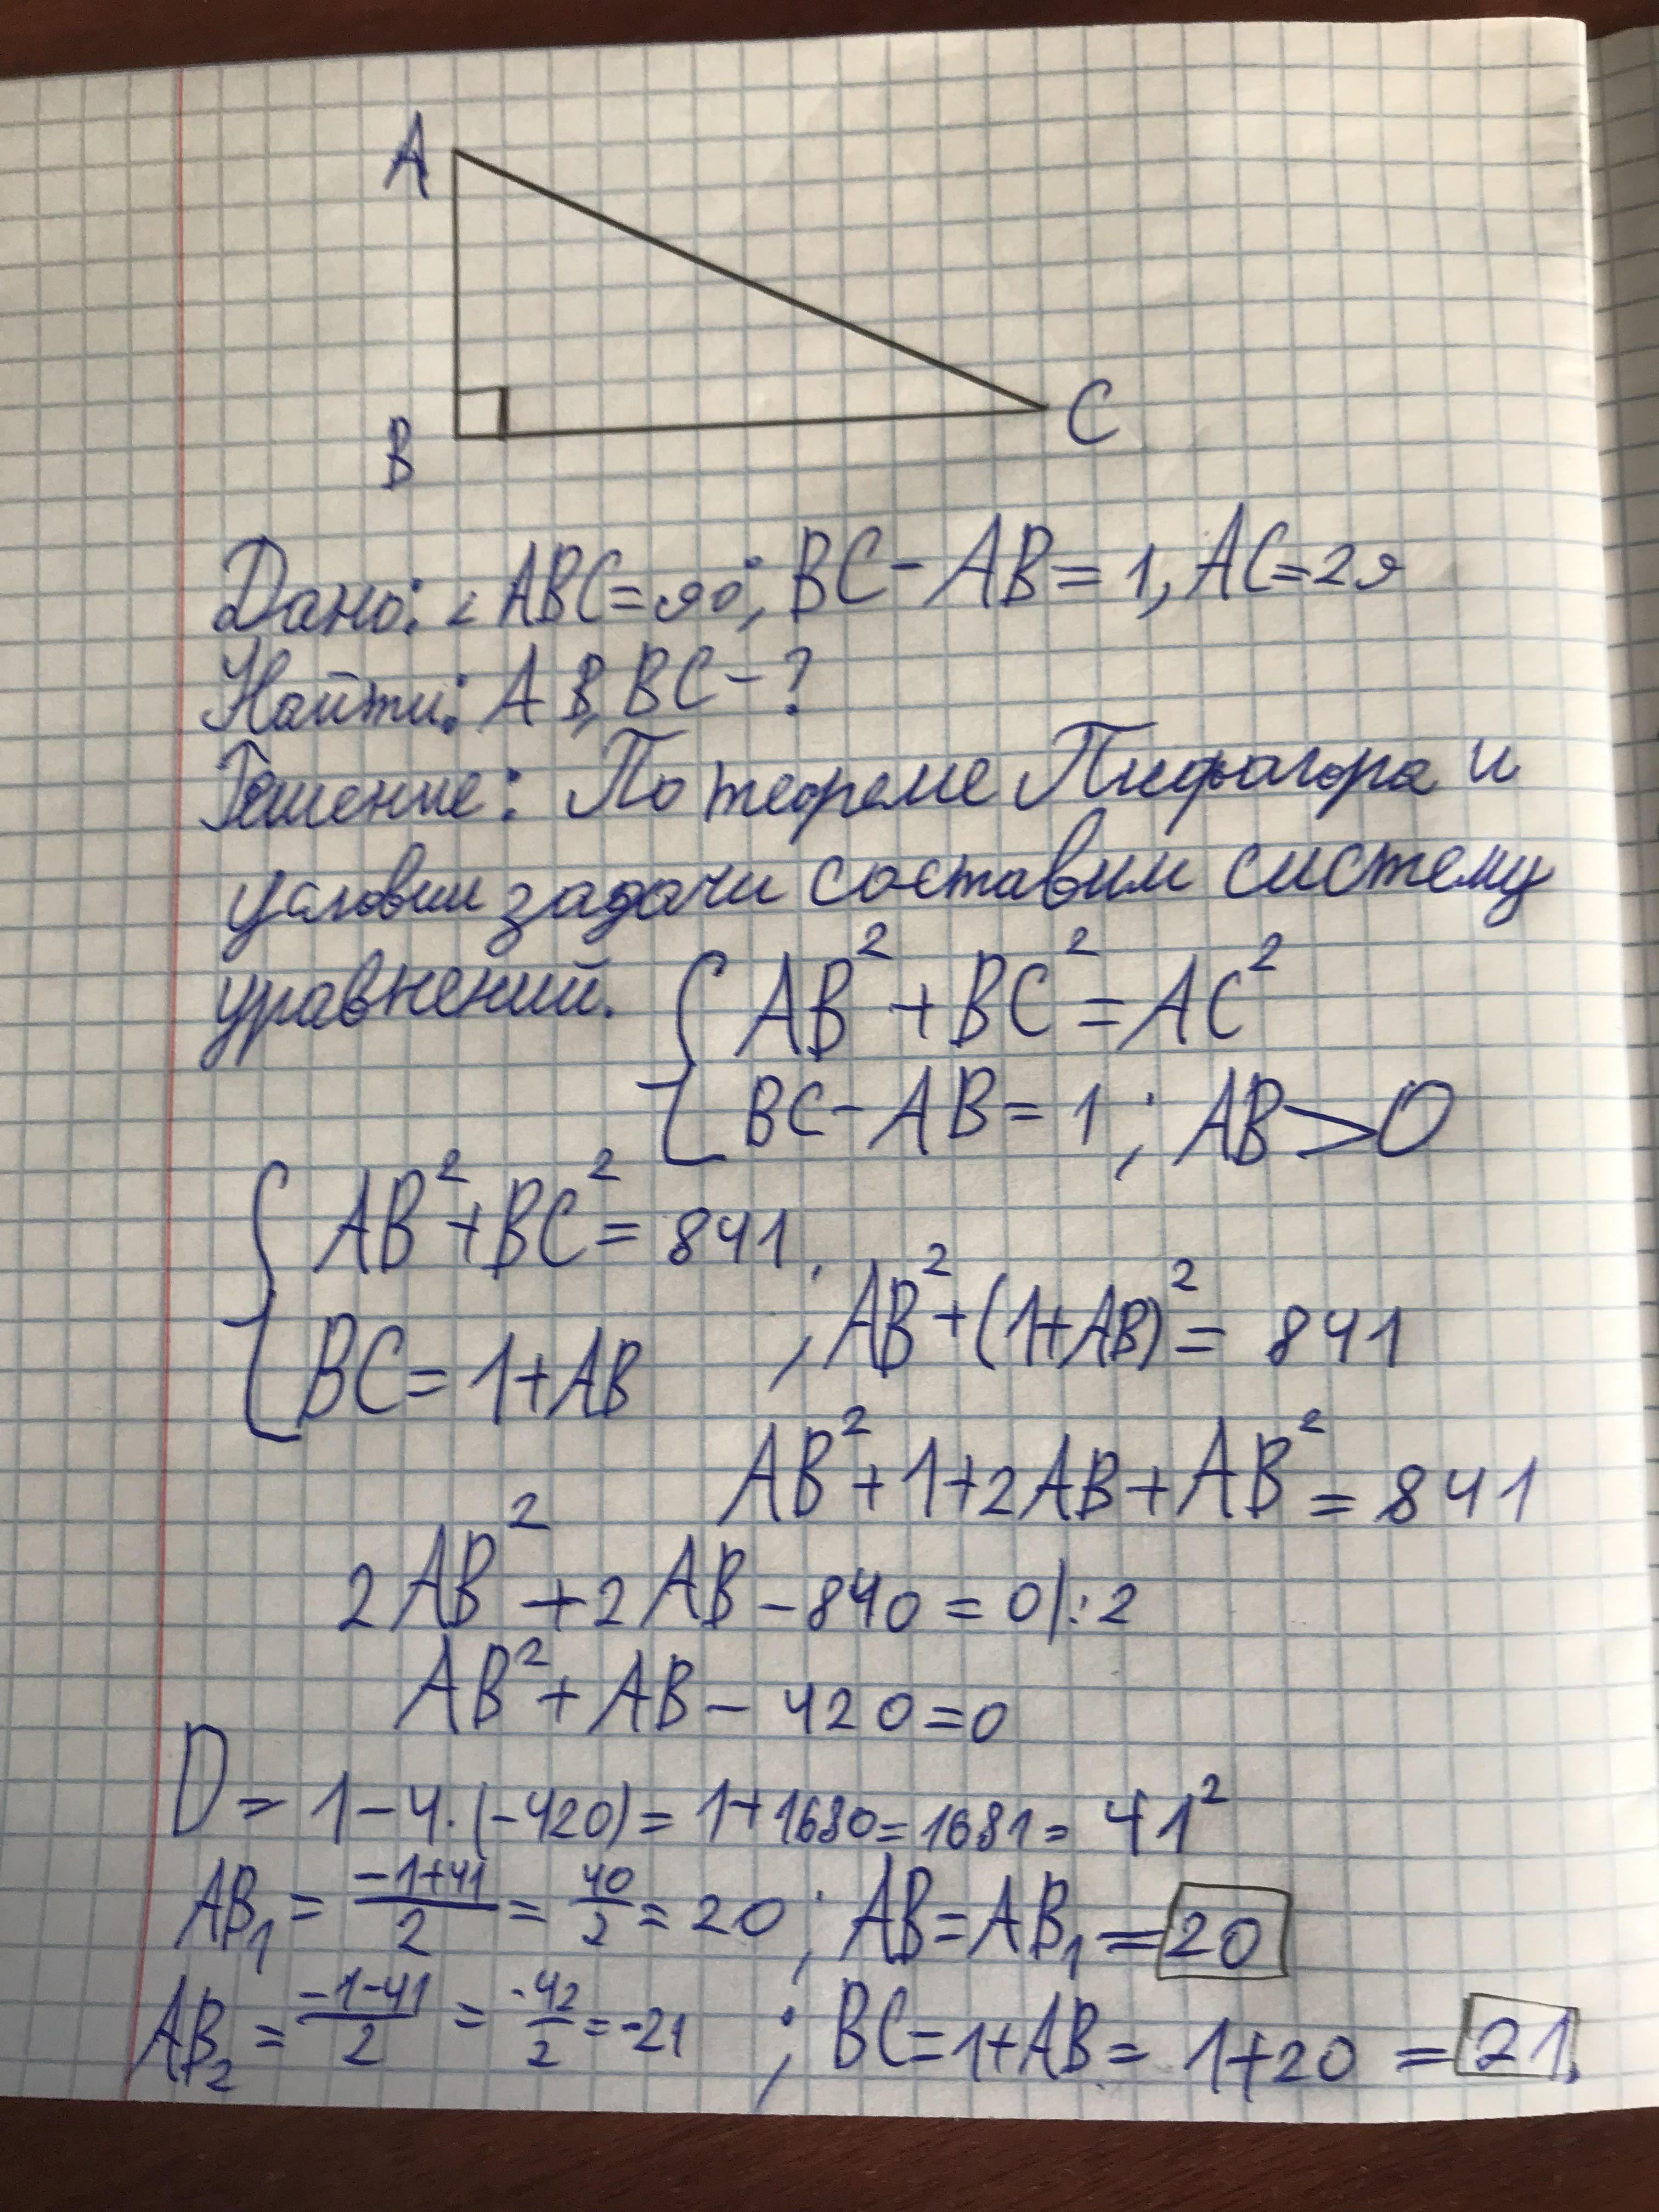 A
B
C
Дано: ∠ABC=90°; BC-AB=1, AC=29
Найти: AB, BC-?
Решение: По теореме Пифагора и
условии задачи составим систему
уравнений. { AB²+BC²=AC²
BC-AB=1; AB>0
{ AB²+BC²=841
BC=1+AB
; AB²+(1+AB)²=841
AB²+1+2AB+AB²=841
2AB²+2AB-840=0|:2
AB²+AB-420=0
D=1-4·(-420)=1+1680=1681=41²
AB₁=(-1+41)/2=40/2=20; AB=AB₁=20
AB₂=(-1-41)/2=-42/2=-21; BC=1+AB=1+20=21.